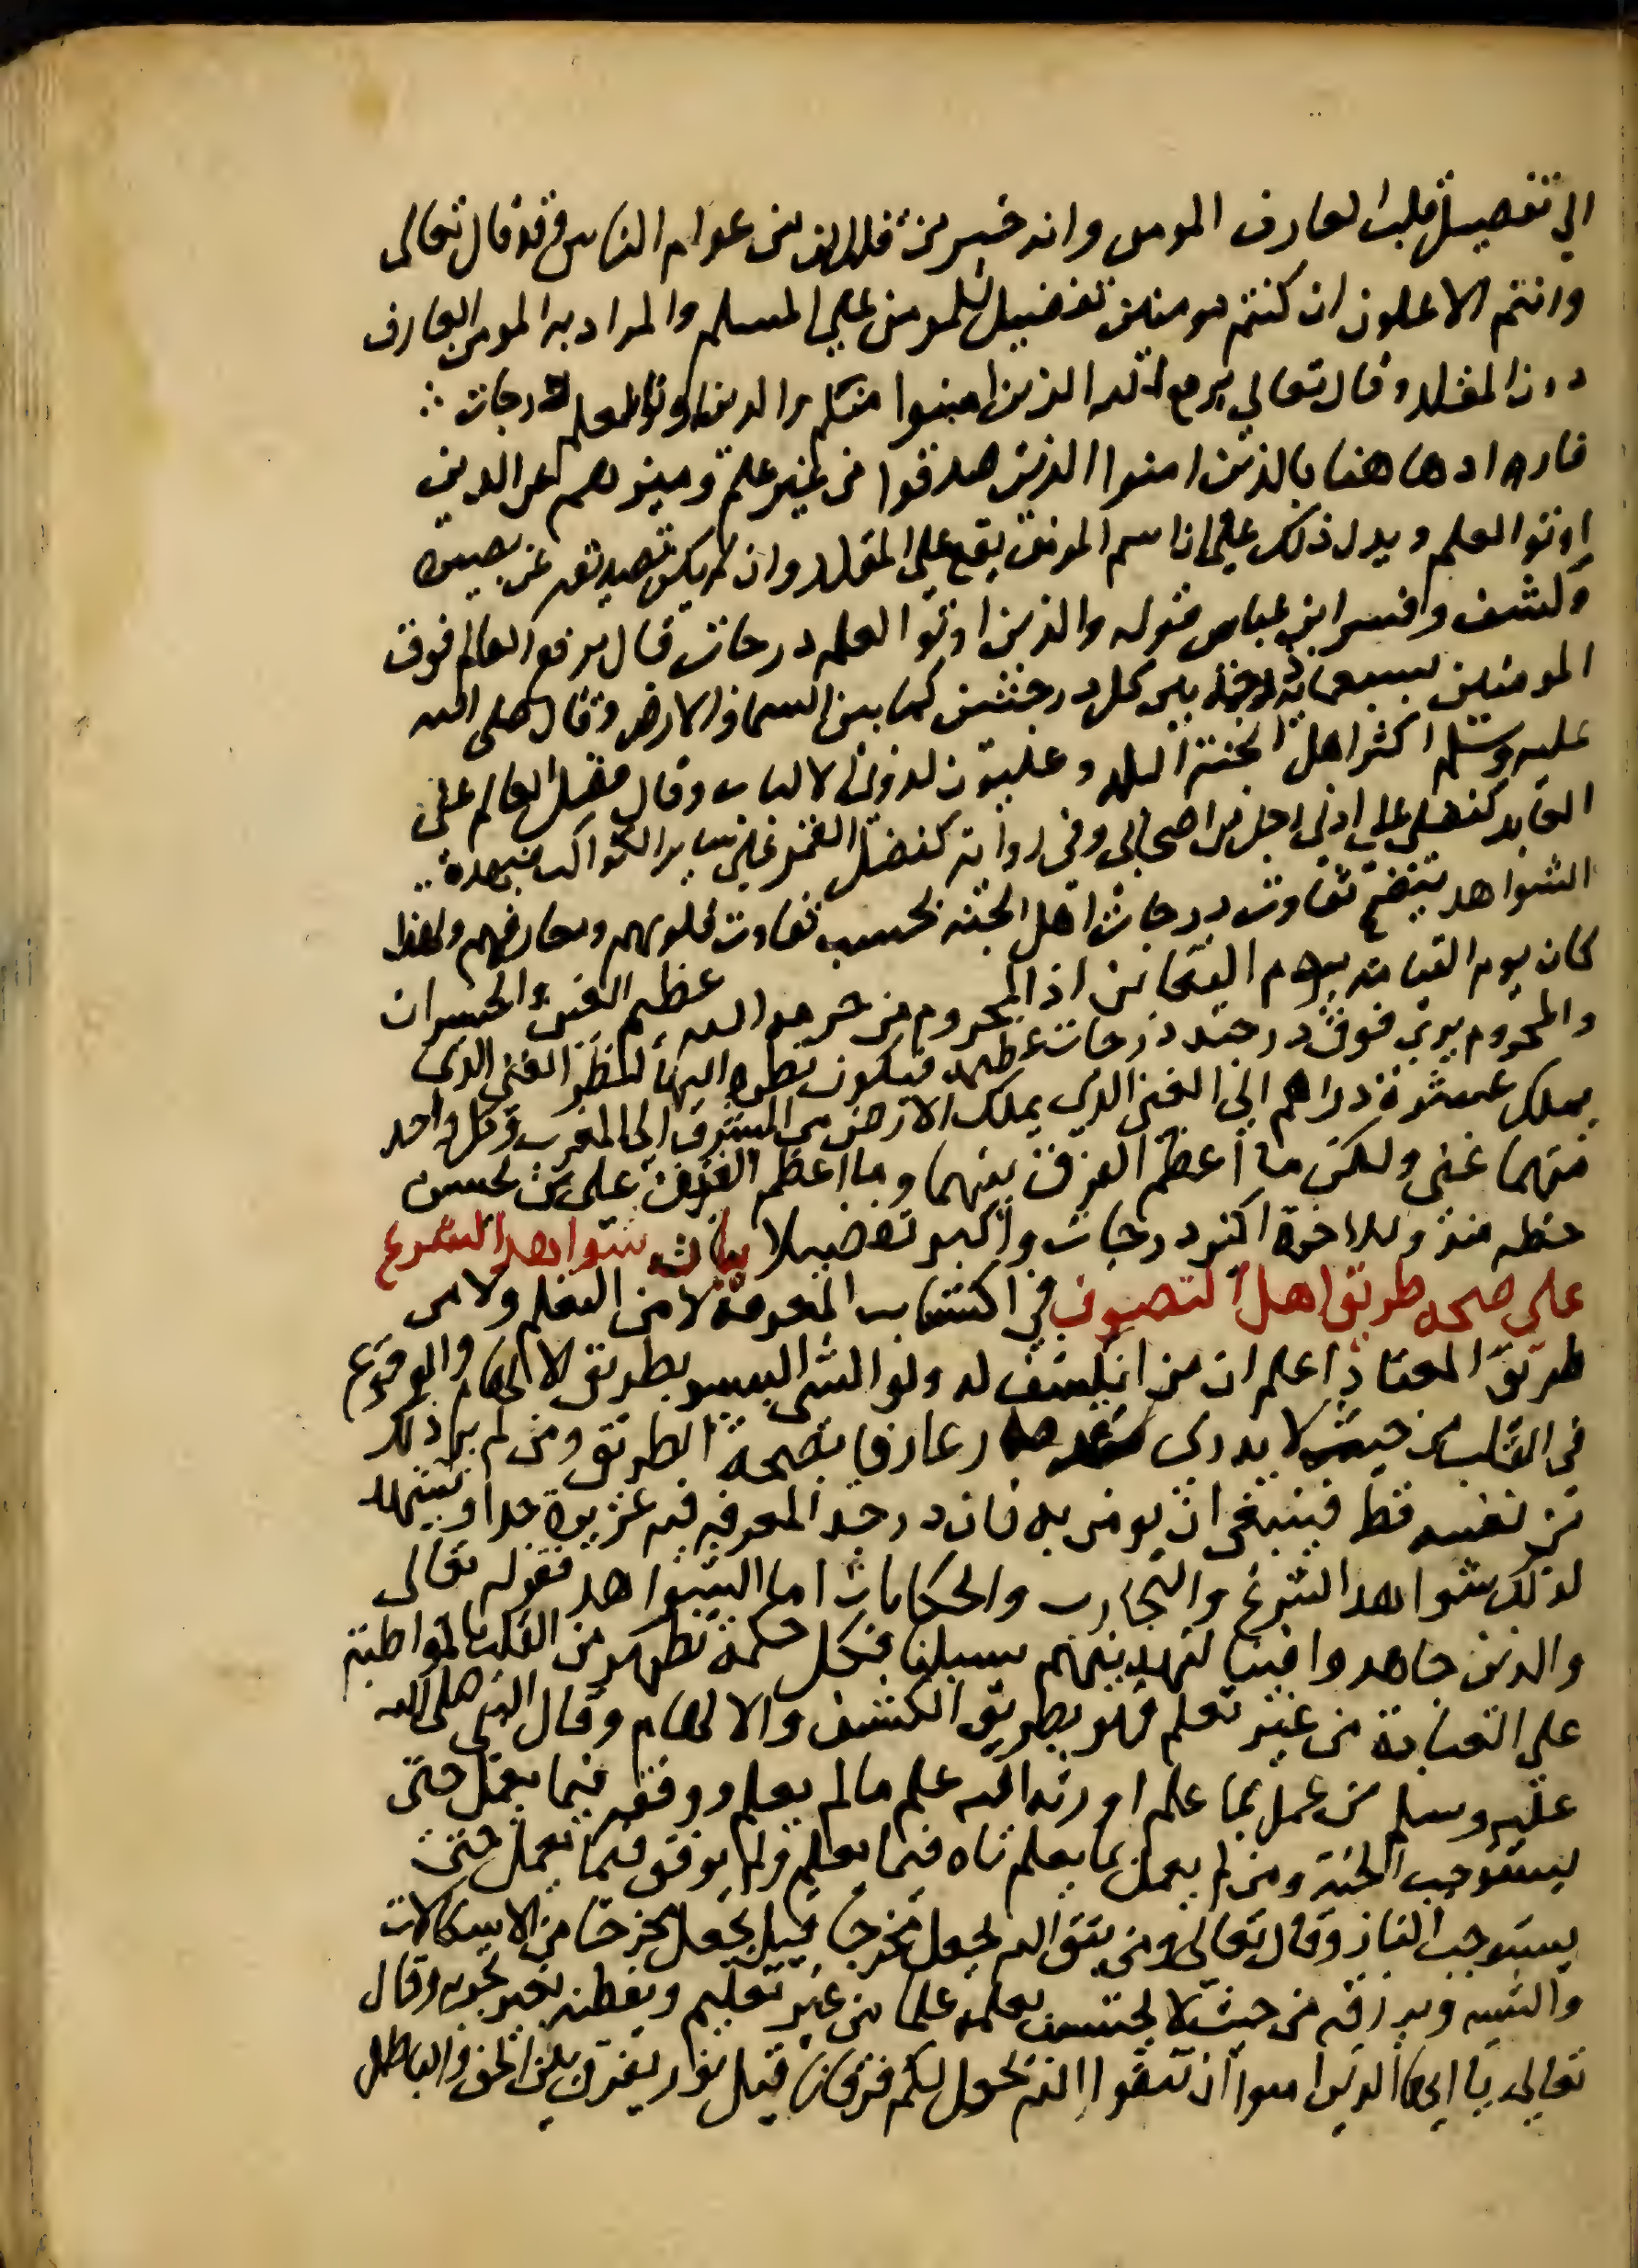 الي تفضيل قلب العارف المومن وانه خير من قلب الف من عوام الناس وقد قال تعالى
وانتم الاعلون ان كنتم مومنين تفضيل للمومن علي المسلم والمراد به المومن العارف
دون المقلد وقال تعالي يرفع الله الذين امنوا منكم والدين اوتوا العلم درجات ∴
فاراد هاهنا بالذين امنوا الذين صدقوا من غير علم وميزهم عن الدين
اوتوا العلم ويدل ذلك علي ان اسم المومن يقع علي المقلد وان لم يكن تصديقه عن بصيرة
وكشف وفسر ابن عباس قوله والذين اوتوا العلم درجات قال يرفع العالم فوق
المومنين بسبعماية درجة بين كل درجتين كما بين السما والارض وقال صلى الله
عليه وسلم اكثر اهل الجنة البله وعليون لذوي الالباب وقال فضل العالم علي
العابد كفضلي علي ادني رجل من اصحابي وفي رواية كفضل القمر علي ساير الكواكب فبهده
الشواهد يتضح تفاوت درجات اهل الجنة بحسب تفاوت قلوبهم ومعارفهم ولهذا
كان يوم القيامة يوم التغابن اذ المحروم من حرمه الله عظيم الغبن والخسران
والمحروم يري فوق درجته درجات عظيمة فيكون نظره اليها كنظر الغني الدي
يملك عشرة دراهم الي الغني الدي يملك الارض من المشرق الي المغرب وكل واحد
منهما غني ولكن ما اعظم الفرق بينهما وما اعظم الغبن علي من يخسر
حظه منه وللاخرة اكبر درجات واكبر تفضيلا بيان شواهد الشرع
علي صحة طريق اهل التصوف في اكتساب المعرفة لا من التعلم ولا من
طريق المعتاد اعلم ان من انكشف له ولو الشي اليسير بطريق الالهام والوقوع
في القلب من حيث لا يدري فقد صار عارفا بصحة الطريق ومن لم ير ذلك
من نفسه قط فينبغي ان يومن به فان درجة المعرفه فيه عزيزة جدا ويشهد
لذلك شواهد الشرع والتجارب والحكايات اما الشواهد فقوله تعالى
والذين جاهدوا فينا لنهدينهم سبلنا فكل حكمة تظهر من القلب بالمواظبة
علي العبادة من غير تعلم فهو بطريق الكشف والالهام وقال النبي صلى الله
عليه وسلم من عمل بما علم اورثه الله علم مالم يعلم ووفقه فيما يعمل حتى
يستوجب الجنة ومن لم يعمل بما يعلم تاه فيما يعلم ولم يوفق فيما يعمل حتى
يستوجب النار وقال تعالي ومن يتق الله يجعل له مخرجا قيل يجعل له مخرجا من الاشكالات
والشبه ويرزقه من حيث لا يحتسب يعلمه علما من غير تعليم ويفطنه بغير تجربه وقال
تعالي يا ايها الدين امنوا ان تتقوا الله يجعل لكم فرقانا قيل نور يفرق بين الحق والباطل